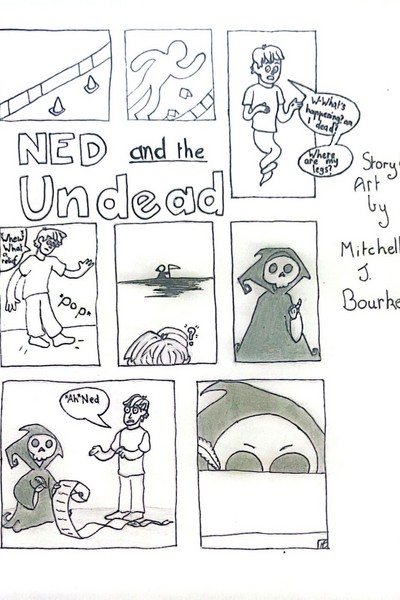 W-What's
happening? am
I dead?
Where
are my
legs?
NED and the
Undead
Story
Art
by
Mitchell
J.
Bourke
Whew!
What
a
relief
*pop*
?
"Ah" Ned